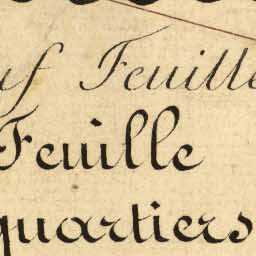 uf Feuille
Feuille
quartiers